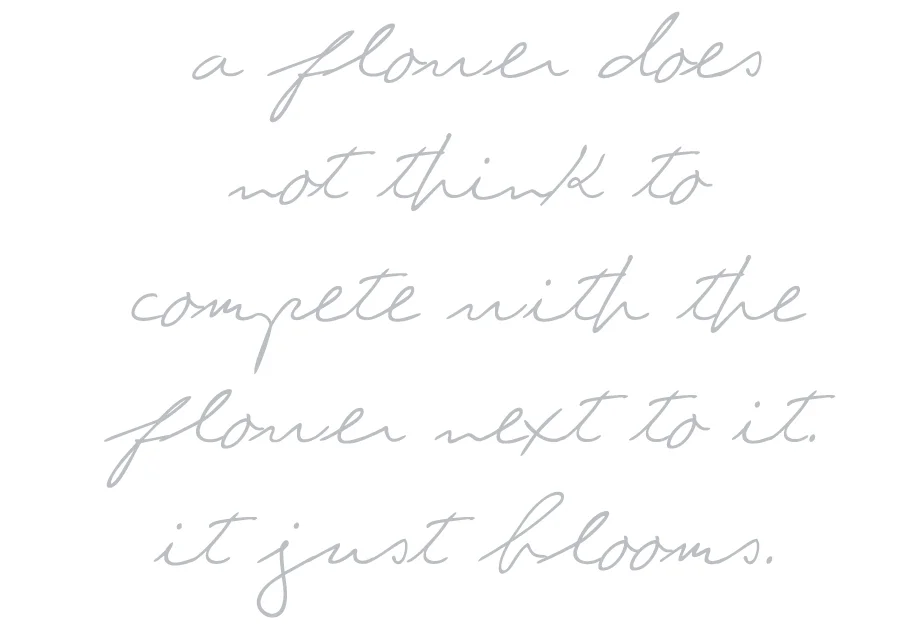 a flower does
not think to
compete with the
flower next to it.
it just blooms.